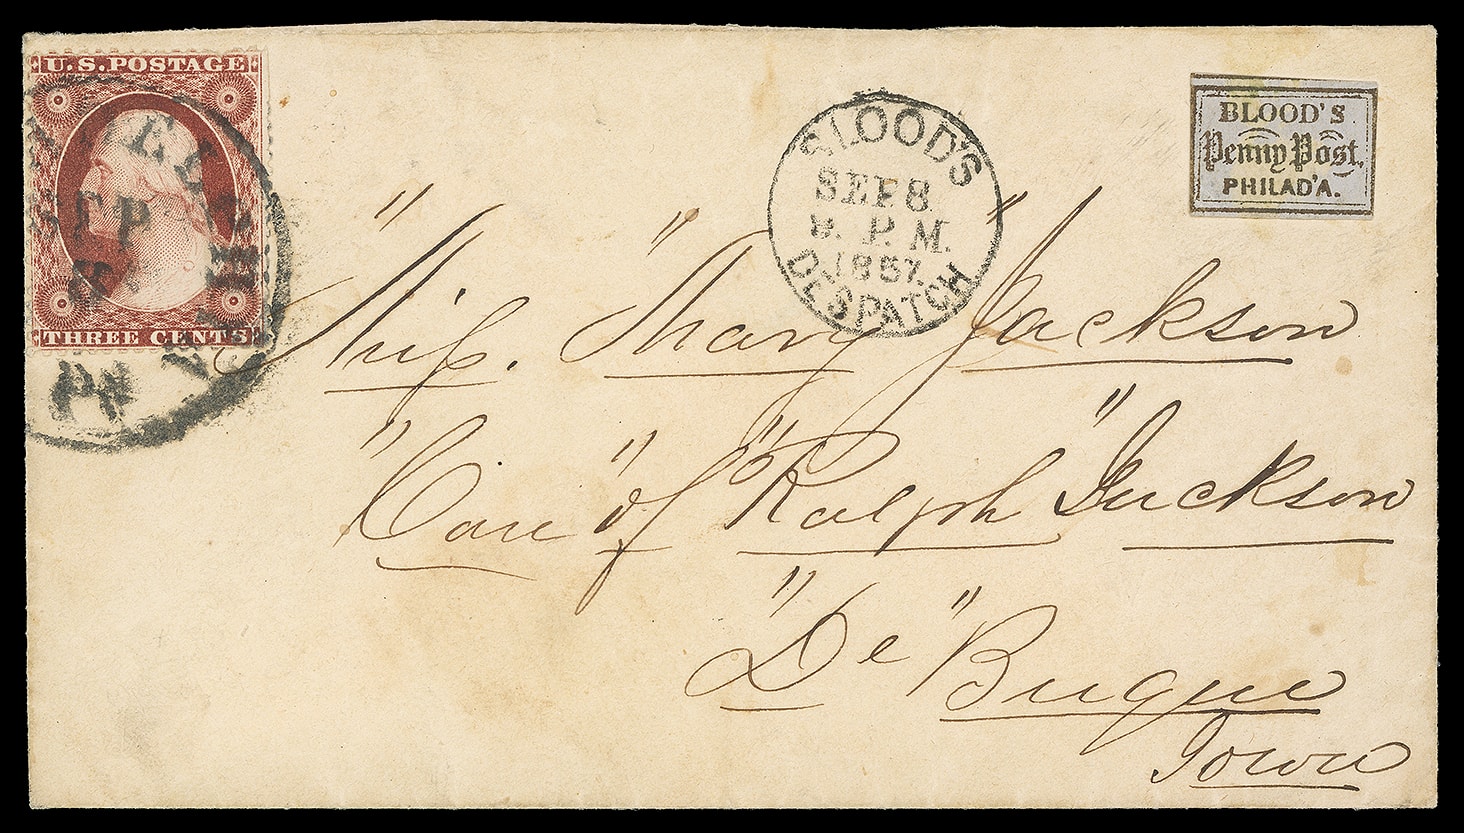 U.S. POSTAGE
THREE CENTS
SEP
Pa
BLOOD'S
SEP 8
P.M.
1857.
DESPATCH
BLOOD'S
Penny Post,
PHILAD'A.
"Miss. "Mary "Jackson
"Care "of "Ralph "Jackson
"De "Buque
Iowa